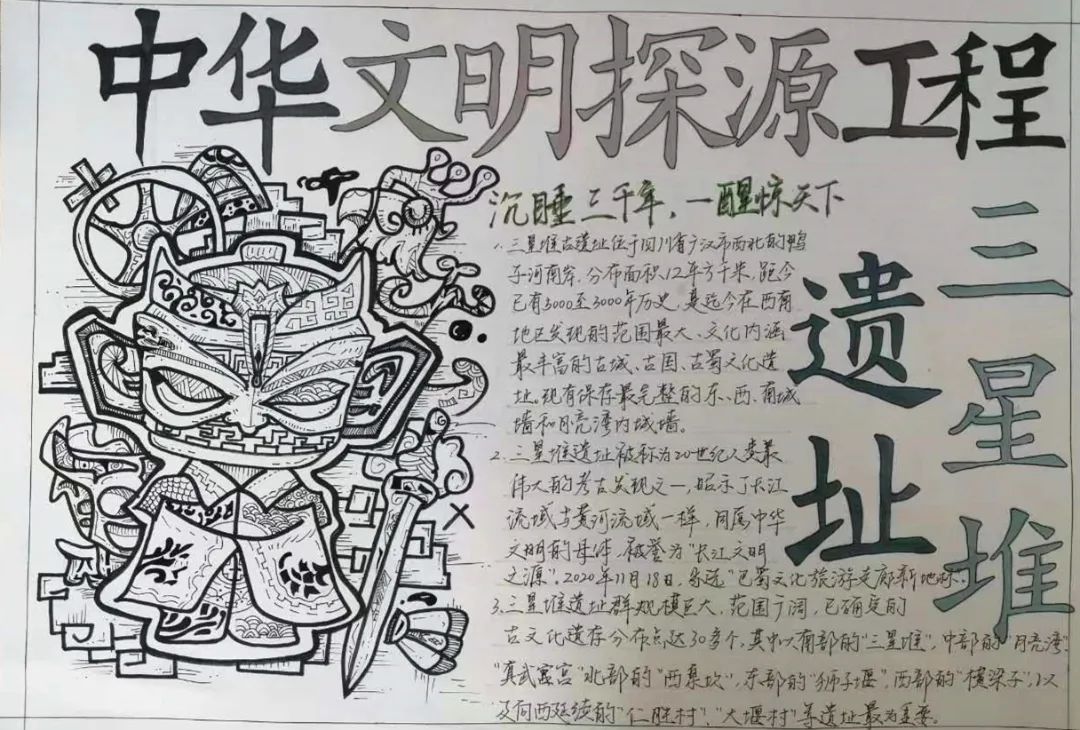 中华文明探源工程
三星堆
遗址
沉睡三千年，一醒惊天下
1. 三星堆古遗址位于四川省广汉市西北的鸭
子河南岸，分布面积12平方千米，距今
已有5000至3000年历史，是迄今在西南
地区发现的范围最大、文化内涵
最丰富的古城、古国、古蜀文化遗
址。现有保存最完整的东、西、南城
墙和月亮湾内城墙。
2. 三星堆遗址被称为20世纪人类最
伟大的考古发现之一，昭示了长江
流域与黄河流域一样，同属中华
文明的母体，被誉为“长江文明
之源”。2020年11月18日，当选“巴蜀文化旅游走廊新地标”.
3. 三星堆遗址群规模巨大，范围广阔，已确定的
古文化遗存分布点达30多个，其中以南部的“三星堆”，中部的“月亮湾”
“真武宫”北部的“西泉坎”，东部的“狮子堰”，西部的“横梁子”，以
及向西延续的“仁胜村”、“大堰村”等遗址最为重要。